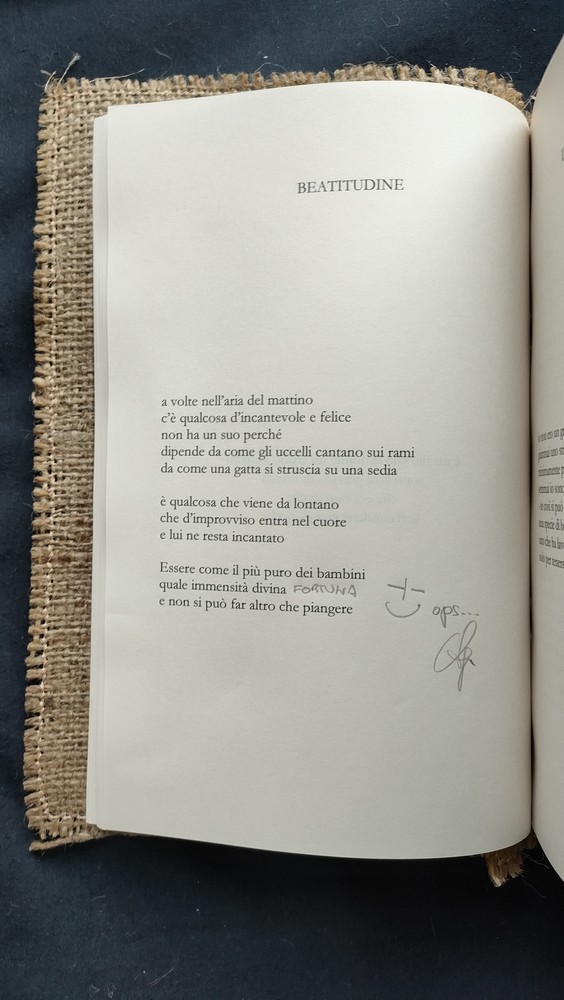 BEATITUDINE
a volte nell'aria del mattino
c'è qualcosa d'incantevole e felice
non ha un suo perché
dipende da come gli uccelli cantano sui rami
da come una gatta si struscia su una sedia
è qualcosa che viene da lontano
che d'improvviso entra nel cuore
e lui ne resta incantato
Essere come il più puro dei bambini
quale immensità divina FORTUNA
e non si può far altro che piangere
ops...